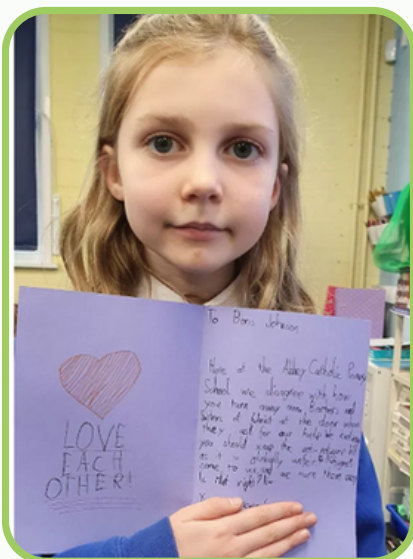 LOVE
EACH
OTHER!
To Boris Johnson
Here at the Abbey Catholic Primary
School we disagree with how
you turn away our Brothers and
Sisters of Christ at the door when
they ask for our help. We
you should the anti-refugee bill
as it is If refugees
come to us and we turn them away
is that right?